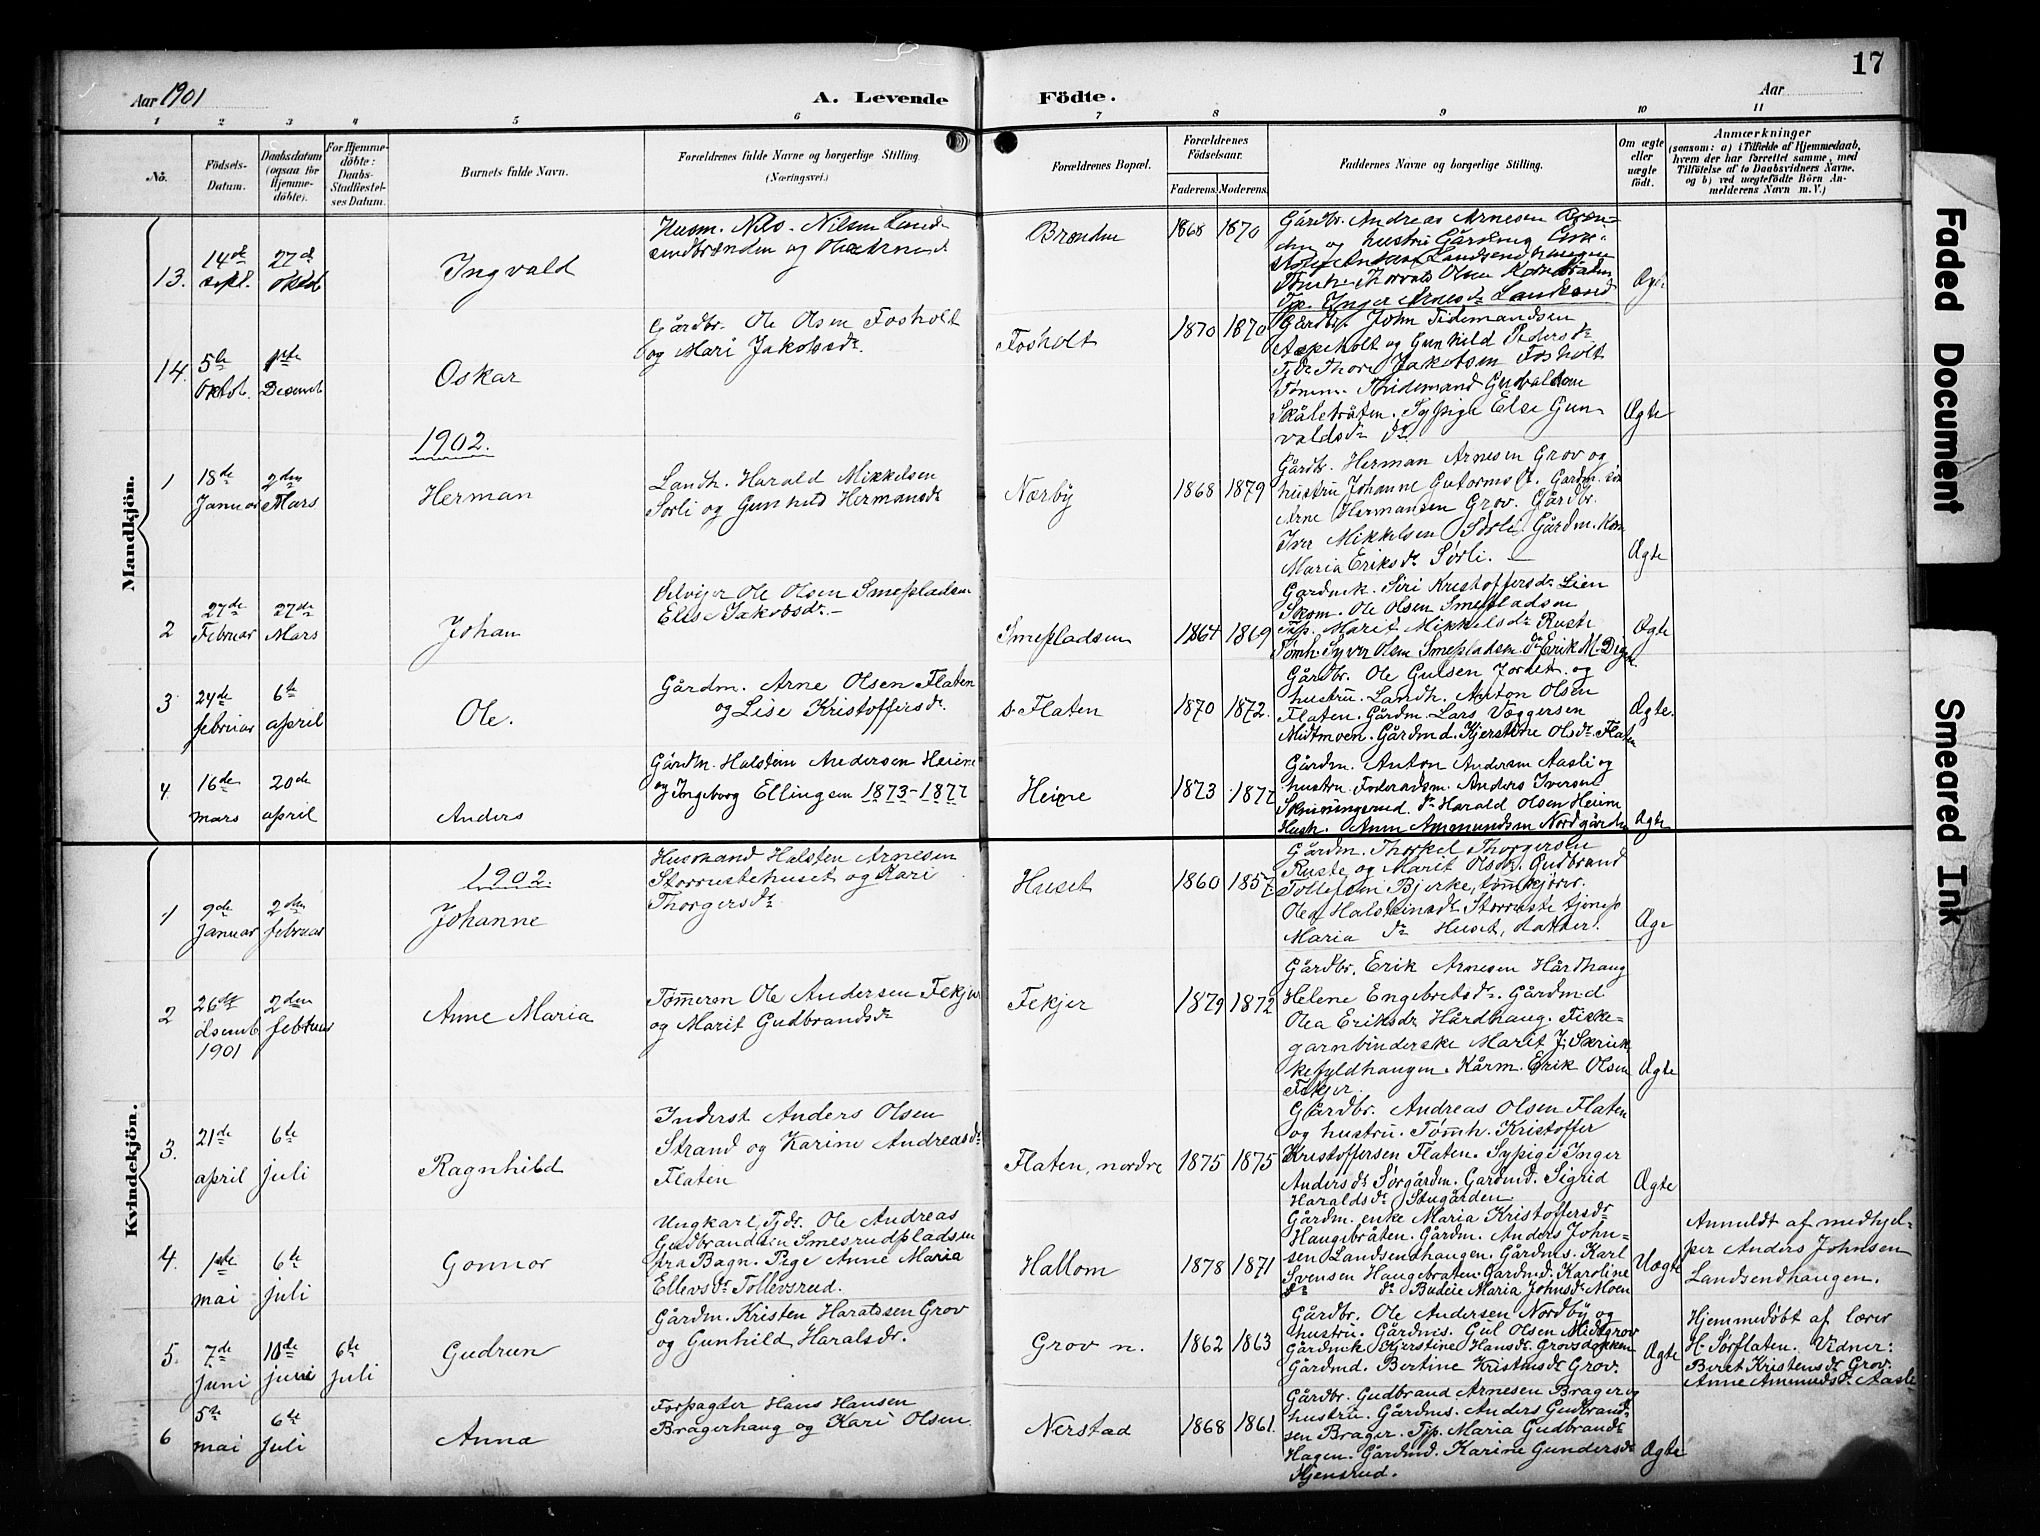 17
Aar 1901
A. Levende Födte.
Aar
1 2 3 4 5 6 7 8 9 10 11
No.
Födsels-Datum.
Daabsdatum (ogsaa for Hjemme-döbte).
For Hjemme-döbte: Daabs-Stadfæstel-ses Datum.
Barnets fulde Navn.
Forældrenes fulde Navne og borgerlige Stilling.
(Næringsvei.)
Forældrenes Bopæl.
Forældrenes Födselsaar.
Faderens. Moderens.
Faddernes Navne og borgerlige Stilling.
Om ægte eller uægte födt.
Anmærkninger
(saasom: a) i Tilfælde af Hjemmedaab,
hvem der har forrettet samme, med
Tilföielse af to Daabsvidners Navne,
og b) ved uægtefödte Börn An-
melderens Navn m. V.)
Mandkjön.
13. 14de sept. 27de oktob
Ingvald
Husm. Nils Nilsen
og
1868 1870
Gårdbr. Andreas Arnesen
og hustru
Olsen
Inger Arnesdr. Landsend
Ægte
14. 5te Oktob. 1ste Desemb
Oskar
Gårdbr. Ole Olsen Fosholt
og Mari Jakobsdr.
Fosholt
1870 1870
Gårdbr. John Tidemandsen
og Gunhild Pedersdr.
Tjdr. Thore Jakobsen Fosholt
Tømm. Thidemand
Sypige Else Gun-
valdsdr. do.
Ægte
1902.
1 18de Januar 2den Mars
Herman
Landh. Harald Mikkelsen
Sørli og Gunhild Hermansdr
Nærby
1868 1879
Gårdbr. Herman Arnesen Grov og
hustru Johanne Gutormsdr. Gardm.
Arne Hermansen Grov. Gårdbr.
Iver Mikkelsen Sørli. Gårdm.
Maria Eriksdr. Sørli. —
Ægte
2 27de Februar 27de Mars
Johan
Selvejer Ole Olsen Smepladsen
Elise Jakobsdr. —
Smepladsen
1864 1869
Gardmk. Siri Kristoffersdr. Lien
Skom. Ole Olsen Smepladsen
Tjp. Marit Mikkelsdr. Ruste
Tømh. Syver Olsen Smepladsen. do Erik M.
Ægte
3 24de februar 6te april
Ole.
Gårdm. Arne Olsen Flaten
og Lise Kristoffersdr.
s. Flaten
1870 1872.
Gårdbr. Ole Gulsen Jordet og
hustru. Landh. Anton Olsen
Flaten. Gårdm. Lars Væggersen
Midtmoen. Gårdmd. Kjerstine Olsdr. Flaten
Ægte.
4 16de mars 20de april
Anders
Gårdm. Halstein Andersen Heiene
og Ingeborg Ellingsen 1873-1877
Heiene
1873 1877
Gårdm. Anton Andersen Aasli og
hustru. Føderaadsm. Anders Iversen
do Harald Olsen Heiene
Hush. Anne Amemundsen Nordgården
Ægte
Kvindekjön.
1902.
1 9de Januar 2den februar
Johanne
Husmand Halsten Arnesen
Storrustehuset og Kari
Thorgersdr.
Huset
1860 1857
Gårdm. Thorkel Thorgersen
Ruste og Marit Olsdr. Gudbrand
Tollefsen Bjerke, tømkjører.
Olea Halsteinsdr. Storruste tjenep.
Maria do Huset, datter.
Ægte
2 26de desemb. 1901 2den februar
Anne Maria
Tømmerm Ole Andersen Fekjer
og Marit Gudbrandsdr
Fekjer
1879 1872
Gårdbr. Erik Arnesen Hårdhaug
Helene Engebretsdr. Gårdmd
Olea Eriksdr. Hårdhaug. Fiske-
garnbinderske Marit J. Skrik-
kefyldhaugen. Kårm. Erik Olsen
Fekjer.
Ægte
3. 21de april 6te juli
Ragnhild
Inderst Anders Olsen
Strand og Karine Andreasdr.
Flaten
Flaten, nordre
1875 1875
Gårdbr. Andreas Olsen Flaten
og hustru. Tømh. Kristoffer
Kristoffersen Flaten. Sypige Inger
Andersdr. Sørgården. Gardmd. Sigrid
Haraldsdr. Stugården.
Ægte
4. 1ste mai 6te juli
Gonnor
Ungkarl, Tjdr. Ole Andreas
Gudbrandsen Smesrudpladsen
fra Bagn. Pige Anne Maria
Ellevsdr. Tollevsrud.
Hallom
1878 1871
Gårdm. enke Maria Kristoffersdr.
Haugebråten. Gårdm. Anders John-
sen Landsendhaugen. Gårdms. Karl
Svensen Haugebråten. Gårdmd. Karoline
do do Budeie Maria Johnsdr. Moen
Uægte
Anmeldt af medhjel-
per Anders Johnsen
Landsendhaugen.
5. 7de juni 10de juni 6te juli
Gudrun
Gårdm. Kristen Haraldsen Grov
og Gunhild Haralsdr.
Grov n.
1862 1863
Gårdbr. Ole Andersen Nordby og
hustru. Gårdms. Gul Olsen Midtgrov
Gårdmk. Kjerstine Hansdr. Grovsdokken
Gårdmd. Bertine Kristensdr. Grov.
Ægte
Hjemmedøbt af lærer
H. Sørflaten. Vidner:
Beret Kristensdr. Grov.
Anne Ammundsdr. Aasli
6 5te mai 6te juli
Anna
Forpagter Hans Hansen
Bragerhaug og Kari Olsen.
Nerstad
1868 1861.
Gårdbr. Gudbrand Arnesen Brager og
hustru. Gårdms. Anders Gudbrand-
sen Brager. Tjp. Maria Gudbrandsdr.
Hagen. Gårdmd. Karine Gundersdr.
Hjensrud.
Ægte
Faded Document
Smeared Ink